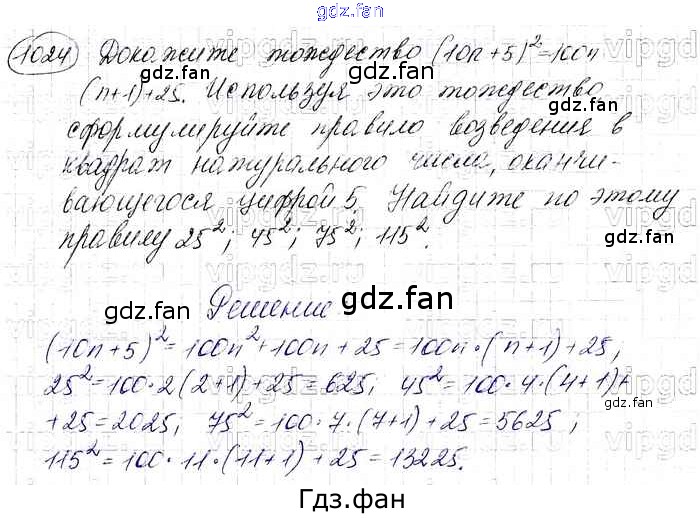 gdz.fan
1024 Докажите тождество (10n+5)²=100n
(n+1)+25. Используя это тождество,
сформулируйте правило возведения в
квадрат натурального числа, оканчи-
вающегося цифрой 5. Найдите по этому
правилу 25²; 45²; 75²; 115².
Решение
(10n+5)²=100n²+100n+25=100n·(n+1)+25,
25²=100·2(2+1)+25=625; 45²=100·4·(4+1)+
+25=2025; 75²=100·7·(7+1)+25=5625;
115²=100·11·(11+1)+25=13225.
Гдз.фан